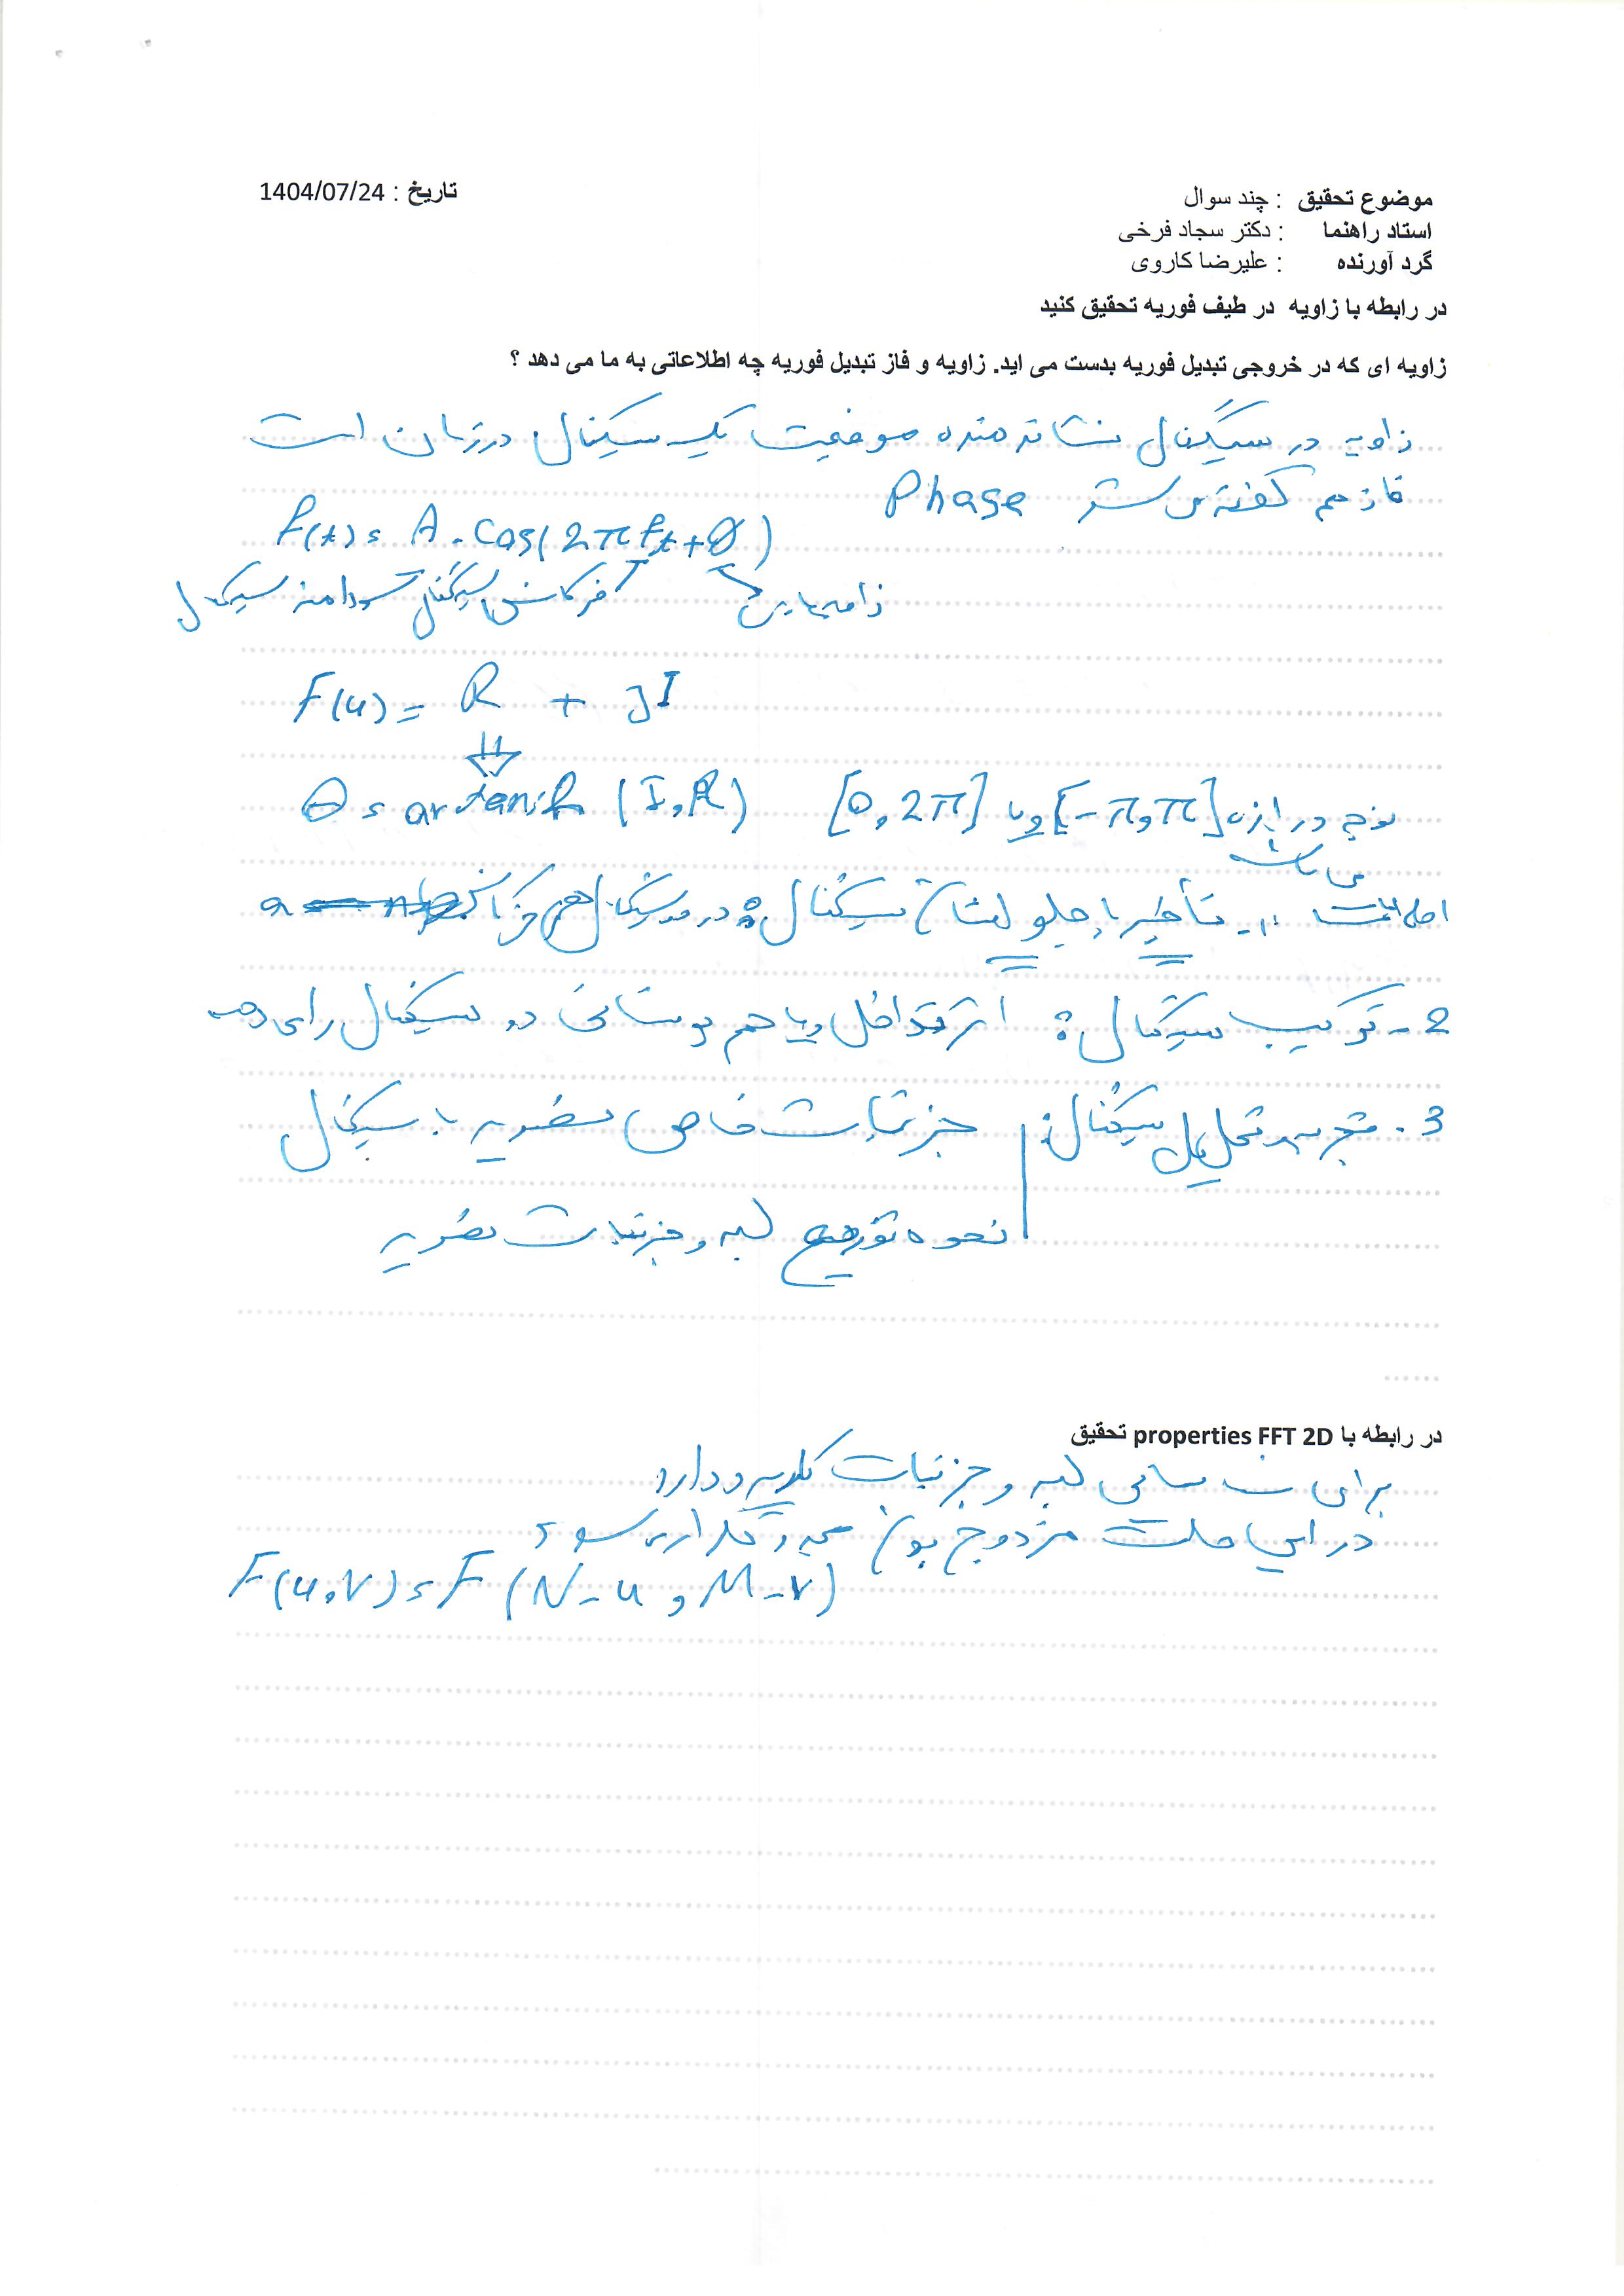 تاریخ : 1404/07/24
موضوع تحقیق : چند سوال
استاد راهنما : دکتر سجاد فرخی
گرد آورنده : علیرضا کاروی
در رابطه با زاویه در طیف فوریه تحقیق کنید
زاویه ای که در خروجی تبدیل فوریه بدست می اید. زاویه و فاز تبدیل فوریه چه اطلاعاتی به ما می دهد ؟
زاویه در سیگنال نشاندهنده موقعیت یک سیگنال در زمان است
فاز هم گفته می شود Phase
f(t) = A . cos(2πft + θ)
زاویه یا فرکانس سیگنال دامنه سیگنال
F(u) = R + jI
θ = (I, R) [0, 2π] و یا [-π, π] در بازه
می باشد
1- تأخیر یا جلو سیگنال: در دو سیگنال هم فرکانس
2- ترکیب سیگنال: اثر تداخل و یا هم پوشانی دو سیگنال را می دهد
3- تجزیه و تحلیل سیگنال: جزئیات خاص تصویر یا سیگنال
نحوه توزیع لبه و جزئیات تصویر
در رابطه با properties FFT 2D تحقیق
برای شناسایی لبه و جزئیات کاربرد دارد
در این حالت مزدوج بودن
F(u, v) = F(N-u, M-v)